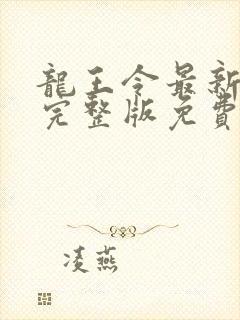 龍王令最新
完整版免費
凌燕